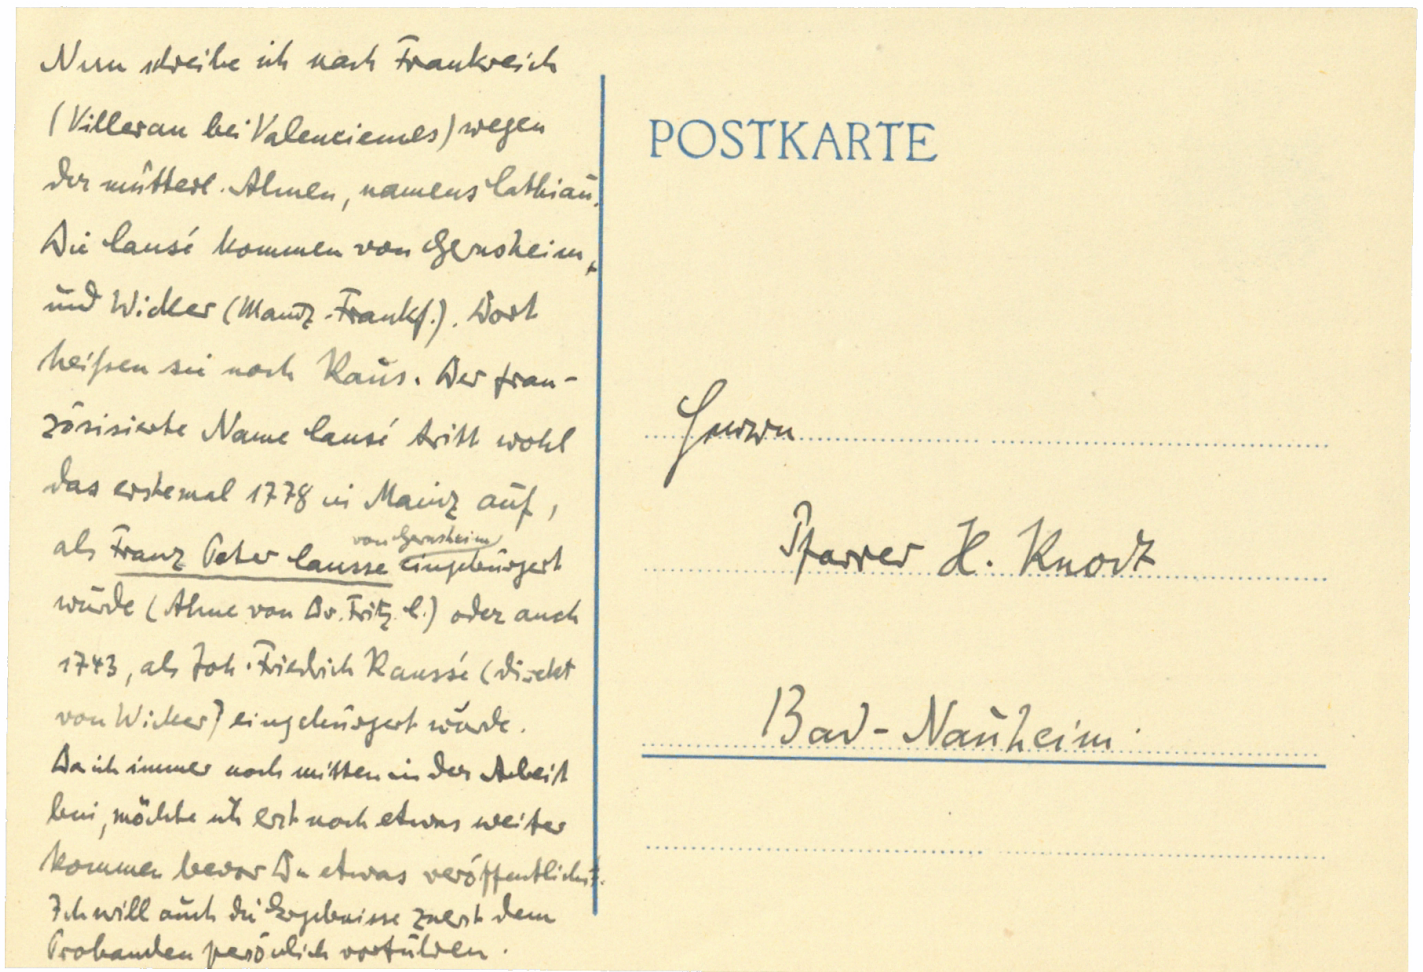 Nun schreibe ich nach Frankreich
(Villerau bei Valenciennes) wegen
der mütterl. Ahnen, namens Cathiau.
Die Causé kommen von Gernsheim,
und Wicker (Mainz-Frankf.). Dort
heißen sie noch Kaus. Der fran-
zösisierte Name Causé tritt wohl
das erstemal 1778 in Mainz auf,
als Franz Peter Causse von Gernsheim eingebürgert
wurde (Ahne von Dr. Fritz C.) oder auch
1743, als Joh. Friedrich Kaussé (direkt
von Wicker) eingebürgert wurde.
Da ich immer noch mitten in der Arbeit
bin, möchte ich erst noch etwas weiter
kommen bevor Du etwas veröffentlichst.
Ich will auch die Ergebnisse zuerst dem
Probanden persönlich vorführen.
POSTKARTE
Herrn
Pfarrer H. Knodt
Bad-Nauheim.